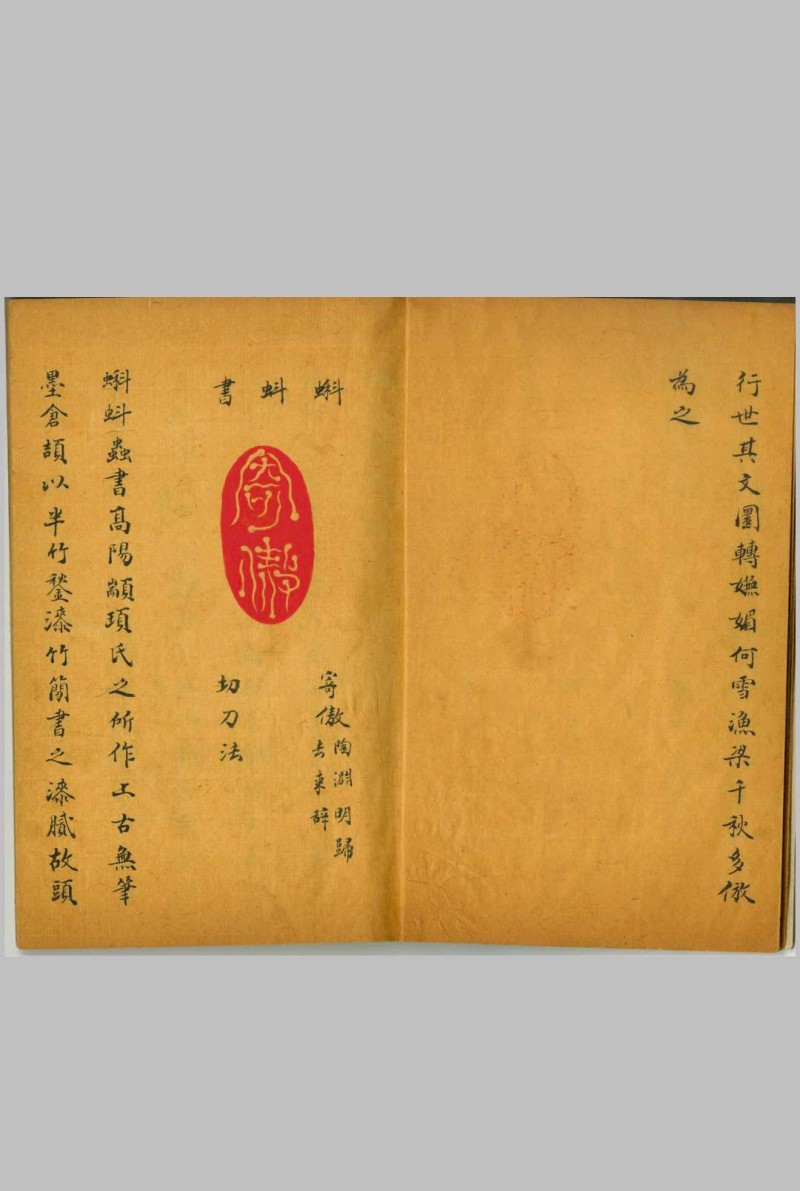 行世其文圜轉嫵媚何雪漁梁千秋多倣
為之
蝌蚪書
寄傲
寄傲陶淵明歸
去來辭
切刀法
蝌蚪蟲書高陽顓頊氏之所作上古無筆
墨倉頡以半竹鍫漆竹簡書之漆膩故頭